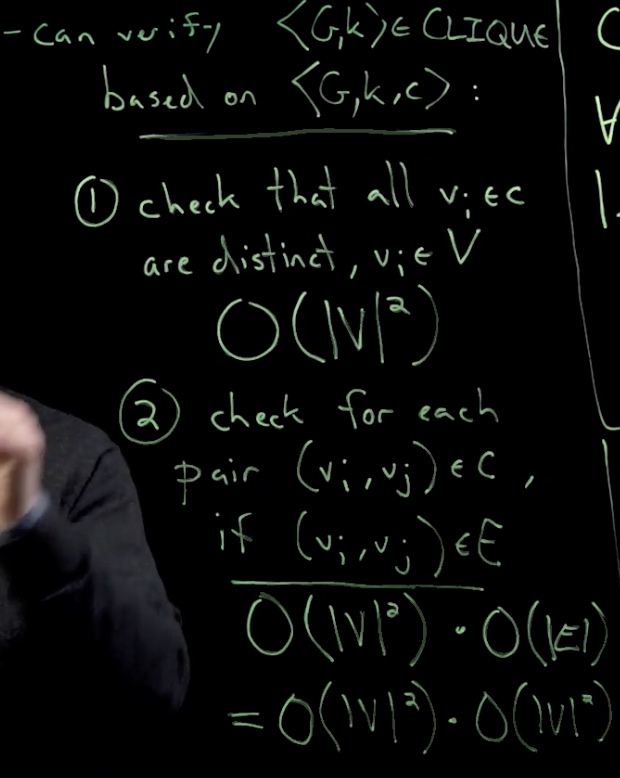 - can verify <G,k> ∈ CLIQUE
based on <G,k,c> :
① check that all vᵢ ∈ c
are distinct, vᵢ ∈ V
O(|V|²)
② check for each
pair (vᵢ, vⱼ) ∈ C,
if (vᵢ, vⱼ) ∈ E
O(|V|²) · O(|E|)
= O(|V|²) · O(|V|²)
C
∀
1.